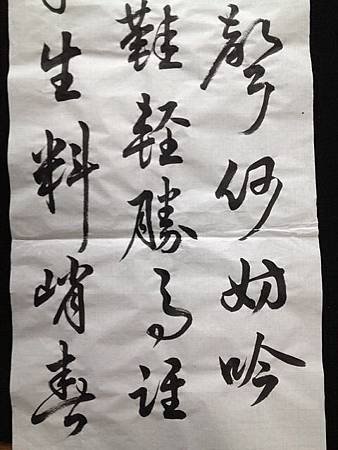 聲何妨吟
鞋輕勝馬誰
生料峭春